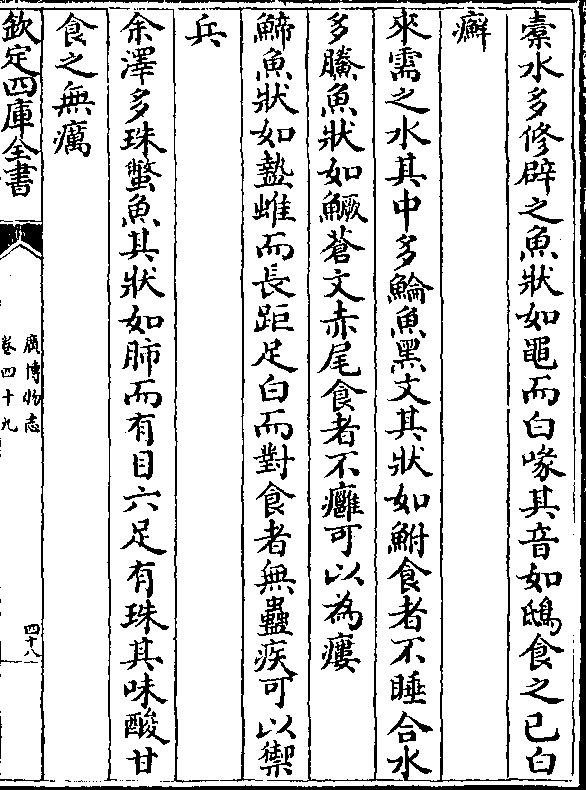 橐水多修辟之魚狀如黽而白喙其音如鴟食之已白
癬
來需之水其中多鯩魚黑文其狀如鮒食者不睡合水
多騰魚狀如鱖蒼文赤尾食者不癰可以為瘻
䱱魚狀如盩蜼而長距足白而對食者無蠱疾可以禦
兵
余澤多珠蟞魚其狀如肺而有目六足有珠其味酸甘
食之無癘
欽定四庫全書
廣博物志
卷四十九
四十八